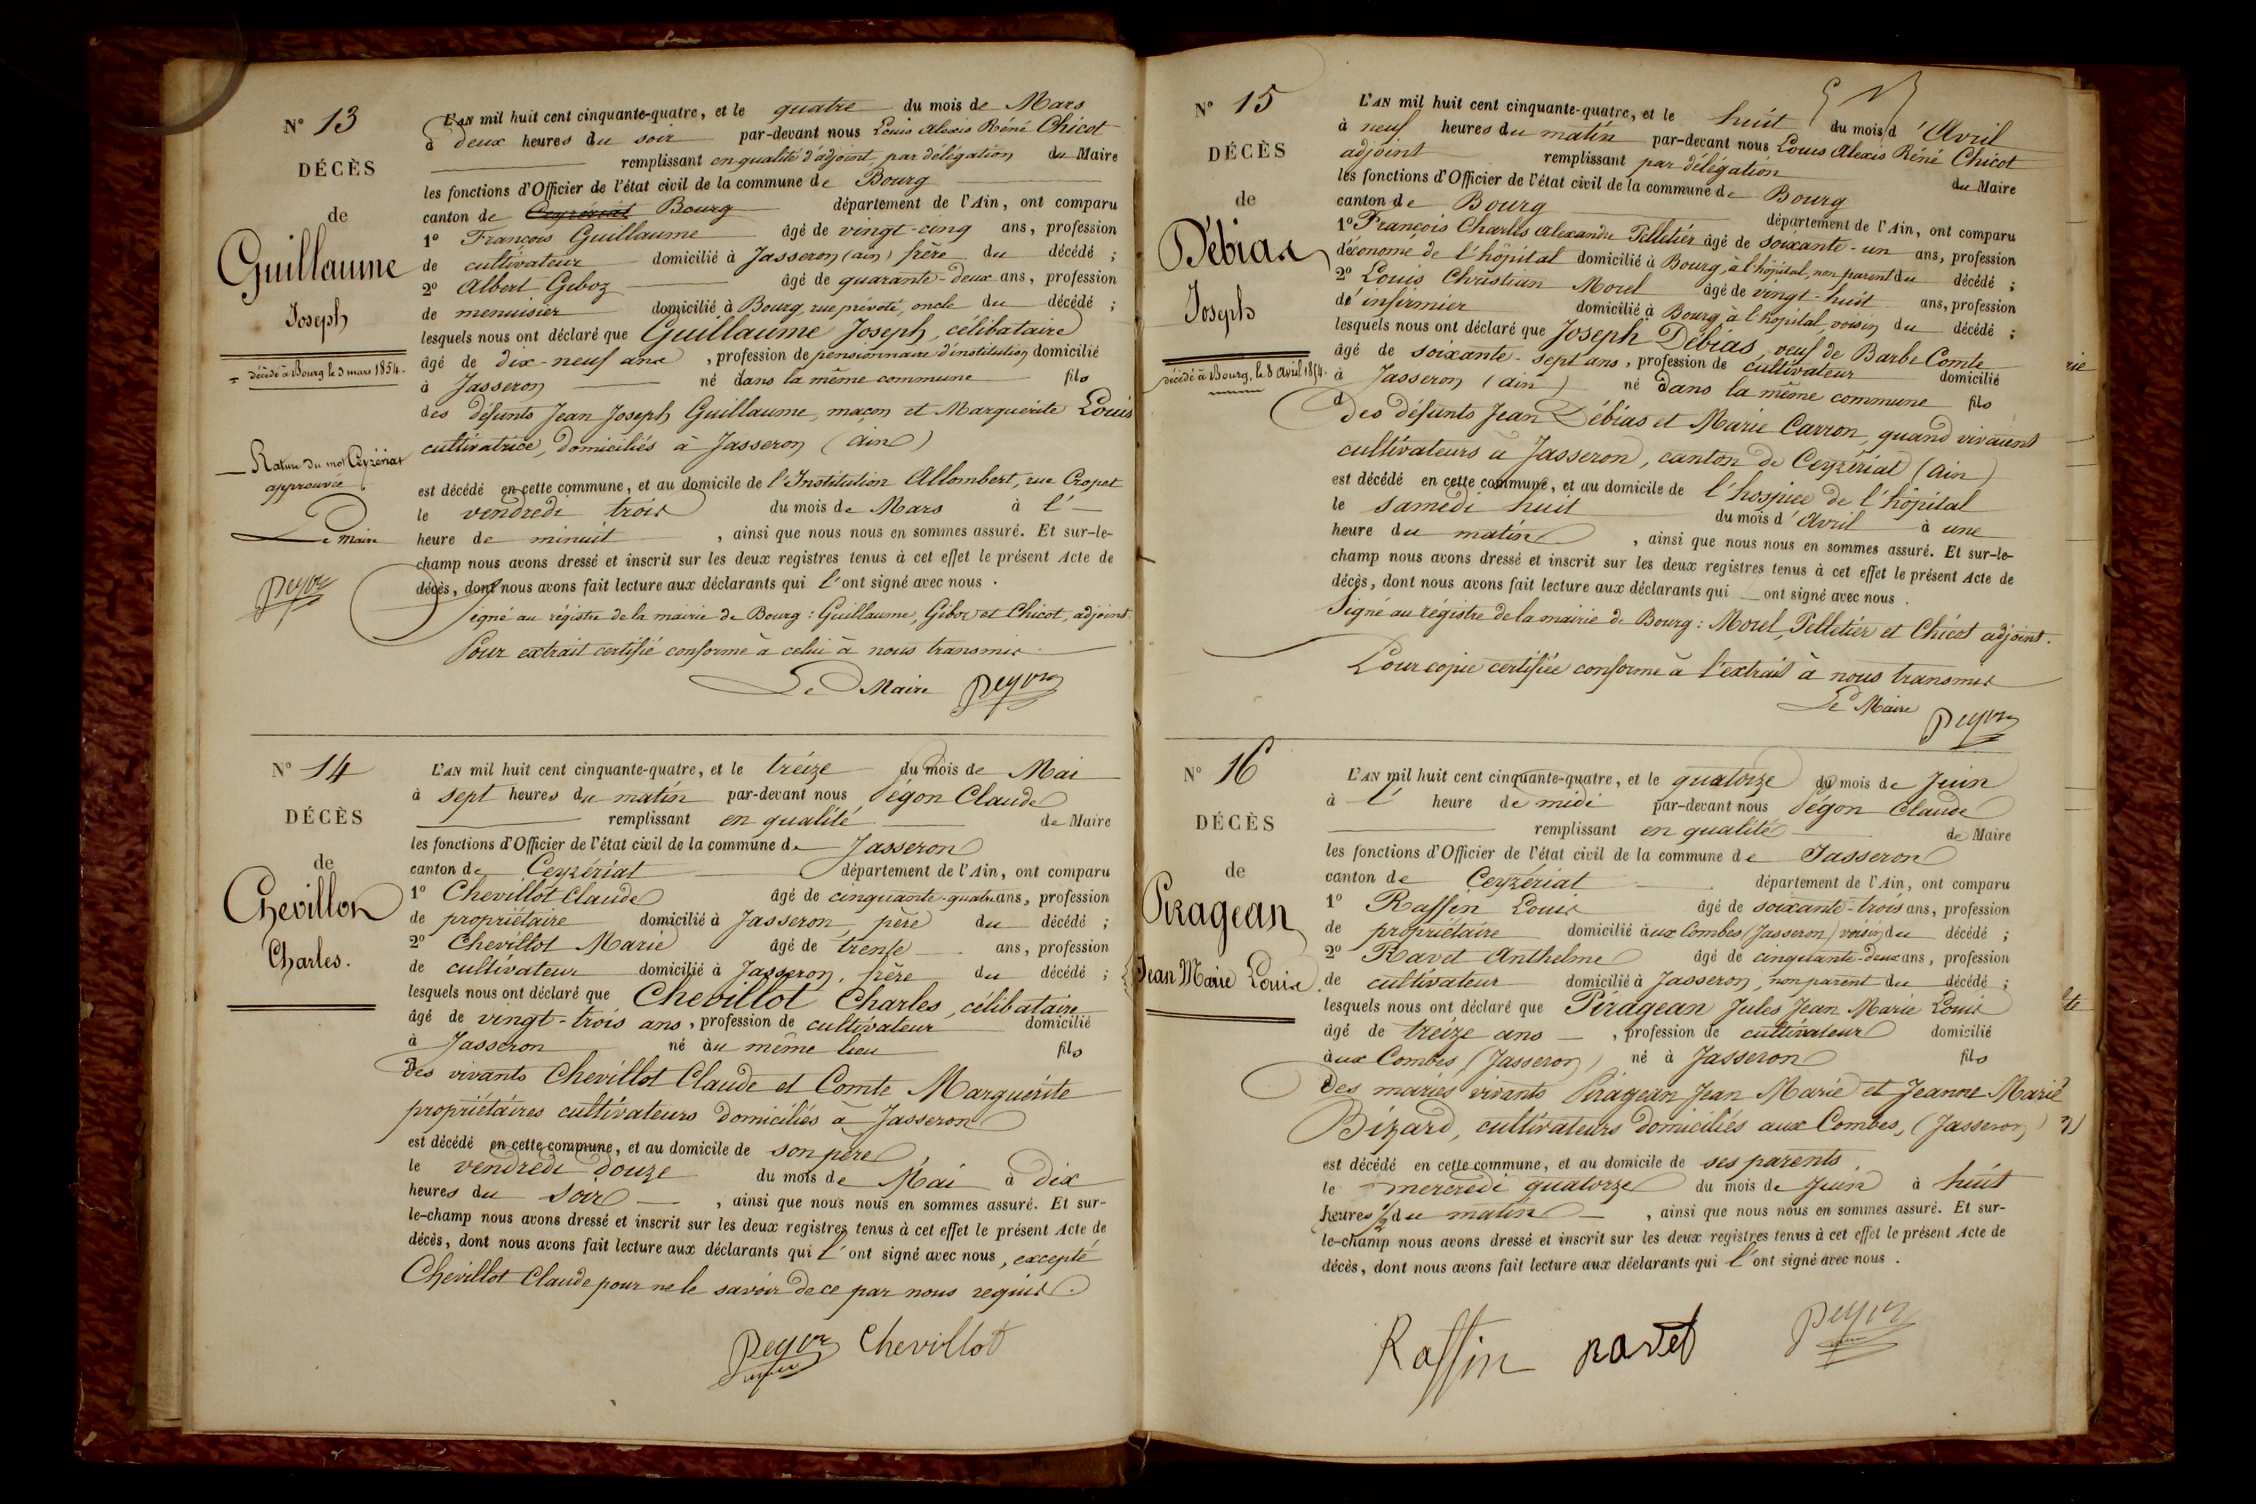 N° 13
DÉCÈS
de
Guillaume
Joseph
= décédé à Bourg le 3 mars 1854.
Rature du mot Ceyzériat
approuvée
Le Maire
L'AN mil huit cent cinquante-quatre, et le quatre du mois de Mars
à deux heures du soir par-devant nous Louis Alexis Réné Chicot
remplissant en qualité d'adjoint par délégation du Maire
les fonctions d'Officier de l'état civil de la commune de Bourg
canton de Ceyzériat Bourg département de l'Ain, ont comparu
1° François Guillaume âgé de vingt-cinq ans, profession
de cultivateur domicilié à Jasseron (ain) frère du décédé ;
2° Albert Geboz âgé de quarante-deux ans, profession
de menuisier domicilié à Bourg, rue prévoté, oncle du décédé ;
lesquels nous ont déclaré que Guillaume Joseph, célibataire
âgé de dix-neuf ans, profession de pensionnaire d'institution domicilié
à Jasseron né dans la même commune fils
des défunts Jean Joseph Guillaume, maçon et Marguerite Louis
cultivatrice, domiciliés à Jasseron (ain)
est décédé en cette commune, et au domicile de l'Institution Allombert, rue Cropet
le vendredi trois du mois de Mars à l'
heure de minuit, ainsi que nous nous en sommes assuré. Et sur-le-
champ nous avons dressé et inscrit sur les deux registres tenus à cet effet le présent Acte de
décès, dont nous avons fait lecture aux déclarants qui l'ont signé avec nous.
Signé au régistre de la mairie de Bourg : Guillaume, Geboz et Chicot, adjoint.
Pour extrait certifié conforme à celui à nous transmis.
Le Maire
N° 14
DÉCÈS
de
Chevillon
Charles.
L'AN mil huit cent cinquante-quatre, et le treize du mois de Mai
à sept heures du matin par-devant nous Pégon Claude
remplissant en qualité de Maire
les fonctions d'Officier de l'état civil de la commune de Jasseron
canton de Ceyzériat département de l'Ain, ont comparu
1° Chevillot Claude âgé de cinquante-quatre ans, profession
de propriétaire domicilié à Jasseron, père du décédé ;
2° Chevillot Marie âgé de trente ans, profession
de cultivateur domicilié à Jasseron, frère du décédé ;
lesquels nous ont déclaré que Chevillot Charles, célibataire
âgé de vingt-trois ans, profession de cultivateur domicilié
à Jasseron né au même lieu fils
des vivants Chevillot Claude et Comte Marguérite
propriétaires cultivateurs domiciliés à Jasseron
est décédé en cette commune, et au domicile de son père,
le vendredi douze du mois de Mai à dix
heures du soir, ainsi que nous nous en sommes assuré. Et sur-
le-champ nous avons dressé et inscrit sur les deux registres tenus à cet effet le présent Acte de
décès, dont nous avons fait lecture aux déclarants qui l'ont signé avec nous, excepté
Chevillot Claude pour ne le savoir de ce par nous requis.
Chevillot
N° 15
DÉCÈS
de
Débias
Joseph
décédé à Bourg, le 8 avril 1854.
L'AN mil huit cent cinquante-quatre, et le huit du mois d'Avril
à neuf heures du matin par-devant nous Louis Alexis Réné Chicot
adjoint remplissant par délégation du Maire
les fonctions d'Officier de l'état civil de la commune de Bourg
canton de Bourg département de l'Ain, ont comparu
1° François Charles Alexandre Pelletiér âgé de soixante-un ans, profession
d'économe de l'hôpital domicilié à Bourg, à l'hôpital, non parent du décédé ;
2° Louis Christian Morel âgé de vingt-huit ans, profession
de infirmier domicilié à Bourg à l'hôpital, voisin du décédé ;
lesquels nous ont déclaré que Joseph Débias, veuf de Barbe Comte
âgé de soixante-sept ans, profession de cultivateur domicilié
à Jasseron (ain) né dans la même commune fils
des défunts Jean Débias et Marie Carron, quand vivaient
cultivateurs à Jasseron, canton de Ceyzériat (ain)
est décédé en cette commune, et au domicile de l'hospice de l'hôpital
le samedi huit du mois d'Avril à une
heure du matin, ainsi que nous nous en sommes assuré. Et sur-le-
champ nous avons dressé et inscrit sur les deux registres tenus à cet effet le présent Acte de
décès, dont nous avons fait lecture aux déclarants qui ont signé avec nous.
Signé au régistre de la mairie de Bourg : Morel, Pelletiér et Chicot adjoint.
Pour copie certifiée conforme à l'extrait à nous transmis
Le Maire
N° 16
DÉCÈS
de
Piragean
Jean Marie Louis.
L'AN mil huit cent cinquante-quatre, et le quatorze du mois de Juin
à l' heure de midi par-devant nous Pégon Claude
remplissant en qualité de Maire
les fonctions d'Officier de l'état civil de la commune de Jasseron
canton de Ceyzériat département de l'Ain, ont comparu
1° Raffin Louis âgé de soixante-trois ans, profession
de propriétaire domicilié aux Combes (Jasseron) voisin du décédé ;
2° Ravet Anthelme âgé de cinquante-deux ans, profession
de cultivateur domicilié à Jasseron, non parent du décédé ;
lesquels nous ont déclaré que Piragean Jules Jean Marie Louis
âgé de treize ans, profession de cultivateur domicilié
aux Combes (Jasseron) né à Jasseron fils
des mariés vivants Piragean Jean Marie et Jeanne Marie
Bizard, cultivateurs domiciliés aux Combes, (Jasseron)
est décédé en cette commune, et au domicile de ses parents,
le mercredi quatorze du mois de Juin à huit
heures 1/2 du matin, ainsi que nous nous en sommes assuré. Et sur-
le-champ nous avons dressé et inscrit sur les deux registres tenus à cet effet le présent Acte de
décès, dont nous avons fait lecture aux déclarants qui l'ont signé avec nous.
Raffin ravet